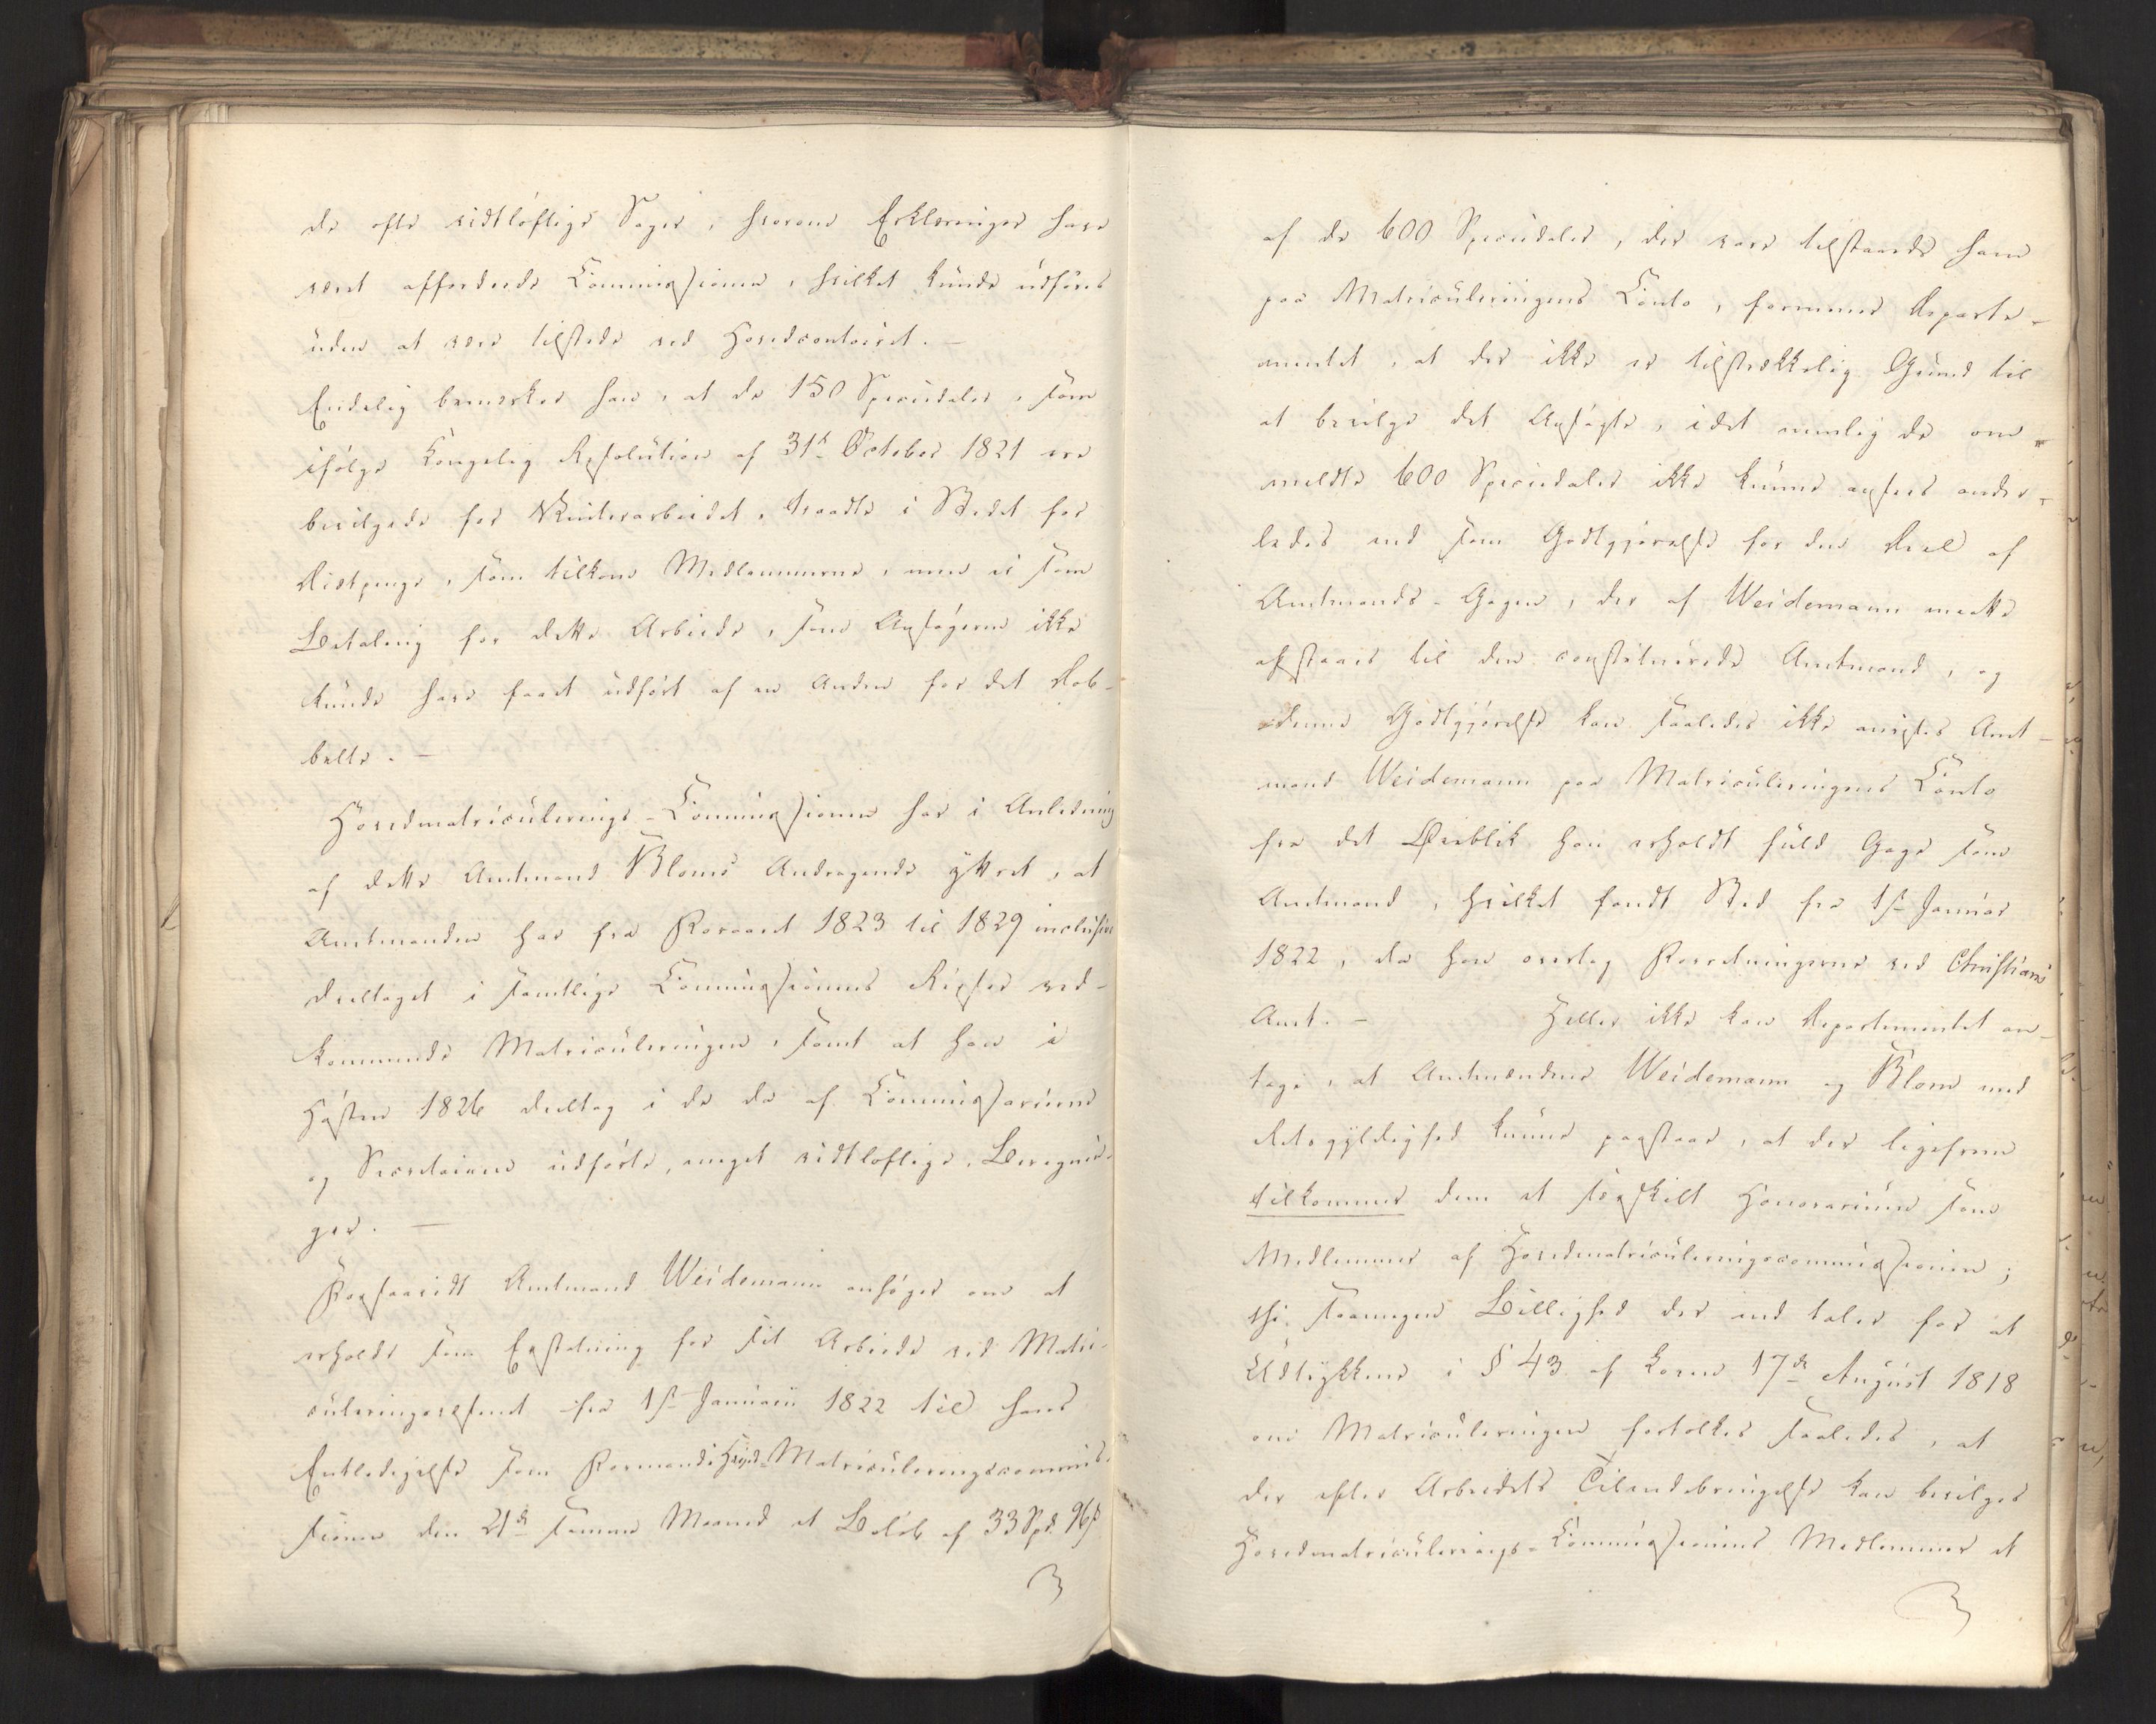 de ofte vidtløftige Sager, hvorom Erklæringer have
været affordrede Commissionen, hvilket kunde udføres
uden at være tilstede ved Hovedcontoiret. —
Endelig bemærker han, at de 150 Speciedaler, som
ifølge Kongelig Resolution af 31te October 1821 ere
bevilgede for Vinterarbeidet, traadte i Stedet for
Diætpenge, som tilkom Medlemmerne, men ei som
Betaling for dette Arbeide, som Ansøgeren ikke
kunde have faaet udført af en Anden for det Dob-
belte. —
Hovedmatriculerings-Commissionen har i Anledning
af dette Amtmand Bloms Andragende yttret, at
Amtmanden har fra Foraaret 1823 til 1829 inclusive
deeltaget i samtlige Commissionens Reiser ved-
kommende Matriculeringen, samt at han i
Høsten 1826 deeltog i de da af Commissarierne
og Secretairen udførte, meget vidtløftige, Beregnin-
ger. —
Forsaavidt Amtmand Weidemann ansøger om at
erholde som Erstatning for sit Arbeide ved Matri-
culeringsvæsenet fra 1ste Januarii 1822 til hans
Entledigelse som Formand i Hoved-Matriculeringscommis-
sionen den 21de samme Maaned et Beløb af 33 Spd. 96 ß
af de 600 Speciedaler, der vare tilstaaede ham
paa Matriculeringens Conto, formener Departe-
mentet, at der ikke er tilstrækkelig Grund til
at bevilge det Ansøgte, idet nemlig de om-
meldte 600 Speciedaler ikke kunne ansees ander-
ledes end som Godtgjørelse for den Deel af
Amtmands-Gagen, der af Weidemann maatte
afstaaes til den constituerede Amtmand, og
denne Godtgjørelse kan saaledes ikke anvises Amt-
mand Weidemann paa Matriculeringens Conto
fra det Øieblik han erholdt fuld Gage som
Amtmand, hvilket fandt Sted fra 1ste Januar
1822, da han overtog Forretningerne ved Christians
Amt. — Heller ikke kan Departementet an-
tage, at Amtmændene Weidemann og Blom med
Retsgyldighed kunne paastaae, at der ligefrem
tilkommer dem et særskilt Honorarium som
Medlemmer af Hovedmatriculeringscommissionen;
thi, saamegen Billighed der end taler for at
Udtrykkene i § 43 af Loven 17de August 1818
om Matriculeringen fortolkes saaledes, at
der efter Arbeidets Tilendebringelse kan bevilges
Hovedmatriculerings-Commissionens Medlemmer et